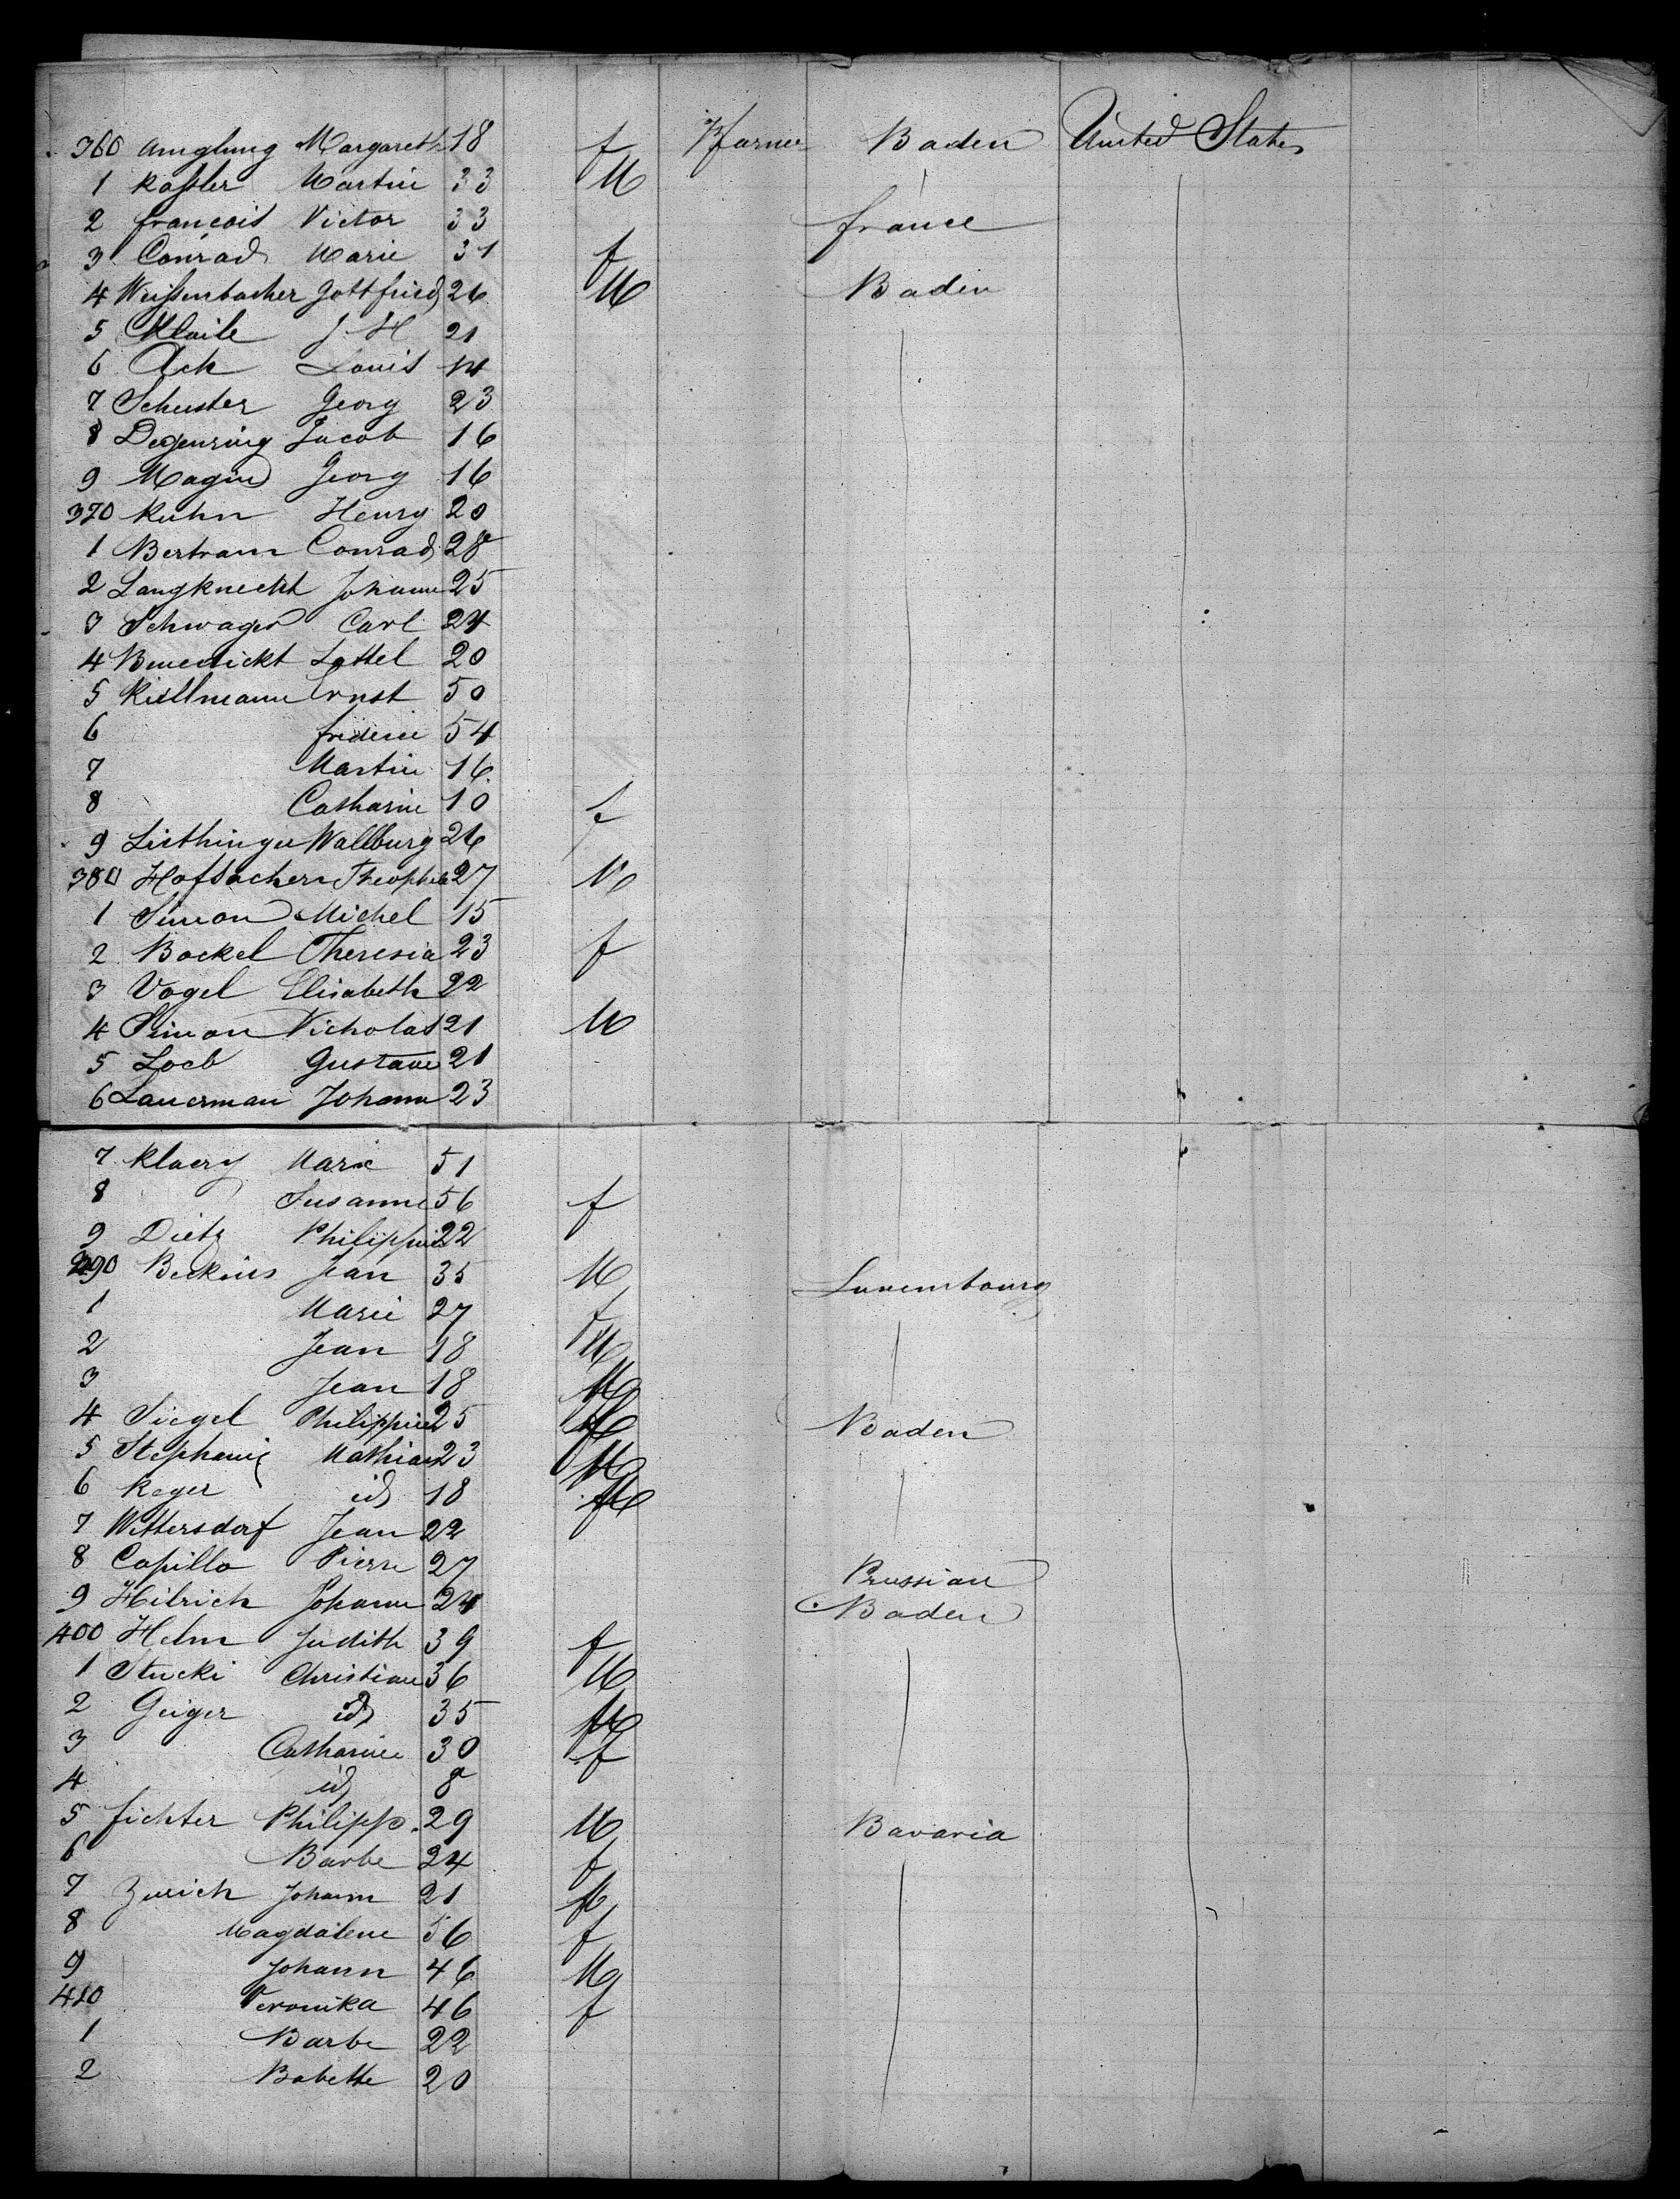 360 Amglung Margareth 18 f Farmer Baden United States
1 Kaßler Martin 33 M
2 francois Victor 33 france
3 Conrad Marie 31 f
4 Weißenbacher Gottfried 26 M Baden
5 Klaile J H 21
6 Ack Louis
7 Schuster Georg 23
8 Degenring Jacob 16
9 Magin Georg 16
370 Kuhn Henry 20
1 Bertram Conrad 28
2 Langknecht Johann 25
3 Schwager Carl 24
4 Benedickt Lottel 20
5 Kiellmann Ernst 50
6 frideric 54
7 Martin 16
8 Catharine 10 f
9 Listhinger Wallburg 26
380 Theophile 27 M
1 Simon Michel 15
2 Bockel Theresia 23 f
3 Vogel Elisabeth 22
4 Simon Nicholas 21 M
5 Loeb Gustave 21
6 Lauerman Johann 23
7 Klaery Marie 51
8 Susanne 56 f
9 Dietz Philippine 22
390 Beckius Jean 35 M Luxembourg
1 Marie 27 f
2 Jean 18 M
3 Jean 18 M
4 Siegel Philippine 25 Baden
5 Stephanie Mathias 23 M
6 Reger id 18 M
7 Wettersdorf Jean 22
8 Capillo Pierre 27 Prussian
9 Hilrich Johann 24 Baden
400 Helm Judith 39 f
1 Stucki Christian 36 M
2 Geiger id 35 M
3 Catharine 30 f
4 id 8
5 fichter Philipp. 29 M Bavaria
6 Barbe 24 f
7 Zurich Johann 21 M
8 Magdalene 56 f
9 Johann 46 M
410 Veronika 46 f
1 Barbe 22
2 Babette 20